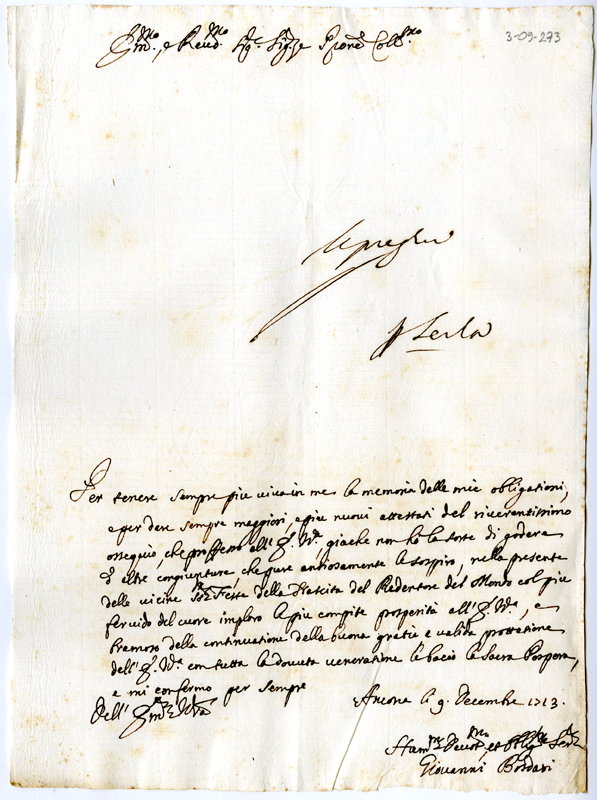 3-09-273
Em.mo, e Reud.mo Sig.re Sig.re Prone Coll.mo
Per tenere sempre più viva in me la memoria delle mie obligationi,
e per dare sempre maggiori, e più nuovi attestati del riverentissimo
ossequio, che professo all' E. V.ra, giache non hò la sorte di godere
d' altre congiunture, che pure ansiosamente le sospiro, nella presente
delle vicine S.te Feste della Nascita del Redentore del Mondo col più
fervido del cuore imploro le più compite prosperità all' E. V.ra, e
bramoso della continuatione della buona gratia e valida protettione
dell' E. V.ra con tutta la dovuta veneratione le bacio la Sacra Porpora,
e mi confermo per sempre
Dell' Em.za V.ra
Ancona li 9. Decembre 1713.
Hum.mo Deuot.mo et Oblig.mo Ser.re
Giovanni Bordari